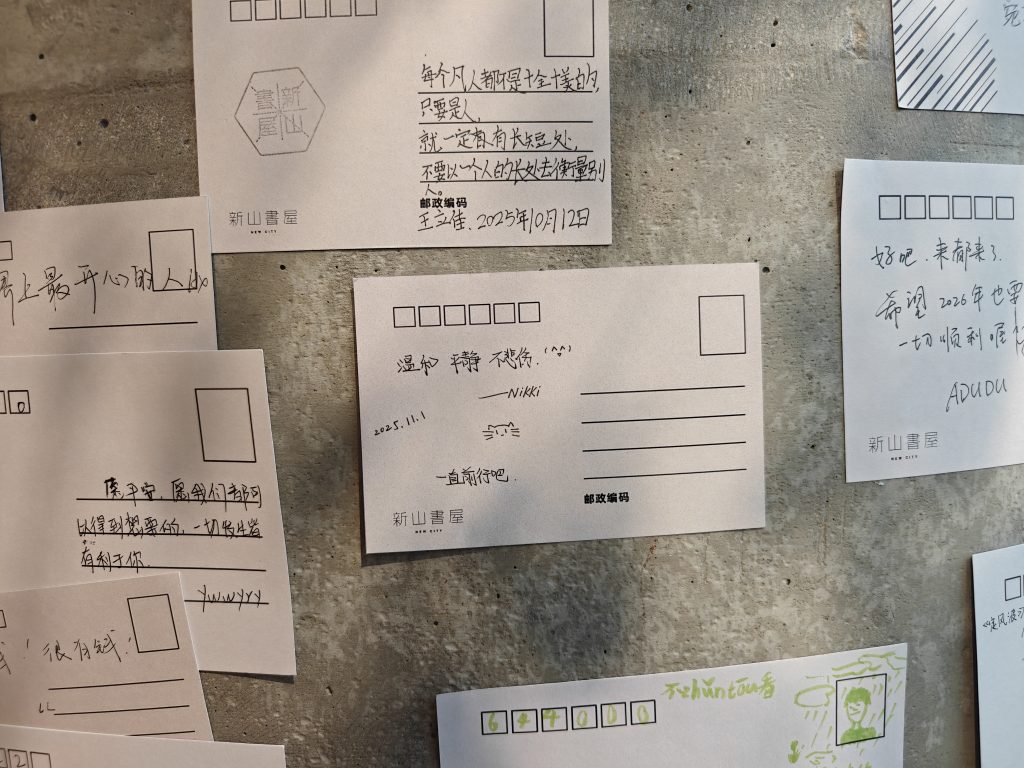 每个凡人都不是十全十美的,
只要是人,
就一定都有长短处,
不要以一个人的长处去衡量别
人。
邮政编码
王立佳、2025年10月12日
新山書屋
新山書屋
NEW CITY
上最开心的人
好吧、来都来了.
希望 2026年也要
一切顺利喔
ADUDU
新山書屋
NEW CITY
温和 平静 不悲伤.(^^)
——Nikki
2025.11.1
一直前行吧.
新山書屋
NEW CITY
邮政编码
愿平安,愿我们都可
以得到想要的,一切发生皆
有利于你.
ywwyyy
!很有钱!
644000
不zhuntou看
宛